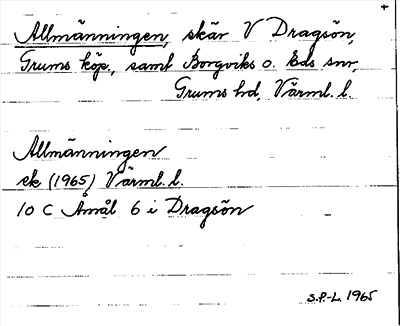 +
Allmänningen, skär V Dragsön,
Grums köp., samt Borgviks o. Eds snr,
Grums hd, Värml. l.
Allmänningen
ek (1965) Värml. l.
10 C Åmål 6 i Dragsön
S.P.-L. 1965